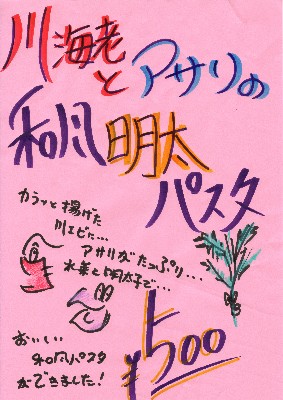 川海老
とアサリの
和風明太
パスタ
カラッと揚げた
川エビに...
アサリがたっぷり...
水菜と明太子で...
おいしい
和風パスタ
ができました!
¥500